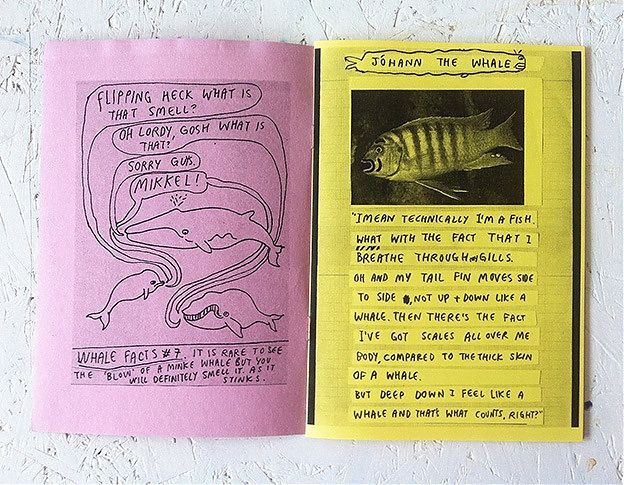 FLIPPING HECK WHAT IS
THAT SMELL?
OH LORDY, GOSH WHAT IS
THAT?
SORRY GUYS.
MIKKEL!
WHALE FACTS #7. IT IS RARE TO SEE
THE 'BLOW' OF A MINKE WHALE BUT YOU
WILL DEFINITELY SMELL IT. AS IT
STINKS.
JÓHANN THE WHALE
"I MEAN TECHNICALLY I'M A FISH.
WHAT WITH THE FACT THAT I
BREATHE THROUGH GILLS.
OH AND MY TAIL FIN MOVES SIDE
TO SIDE, NOT UP + DOWN LIKE A
WHALE. THEN THERE'S THE FACT
I'VE GOT SCALES ALL OVER ME
BODY, COMPARED TO THE THICK SKIN
OF A WHALE.
BUT DEEP DOWN I FEEL LIKE A
WHALE AND THAT'S WHAT COUNTS, RIGHT?"